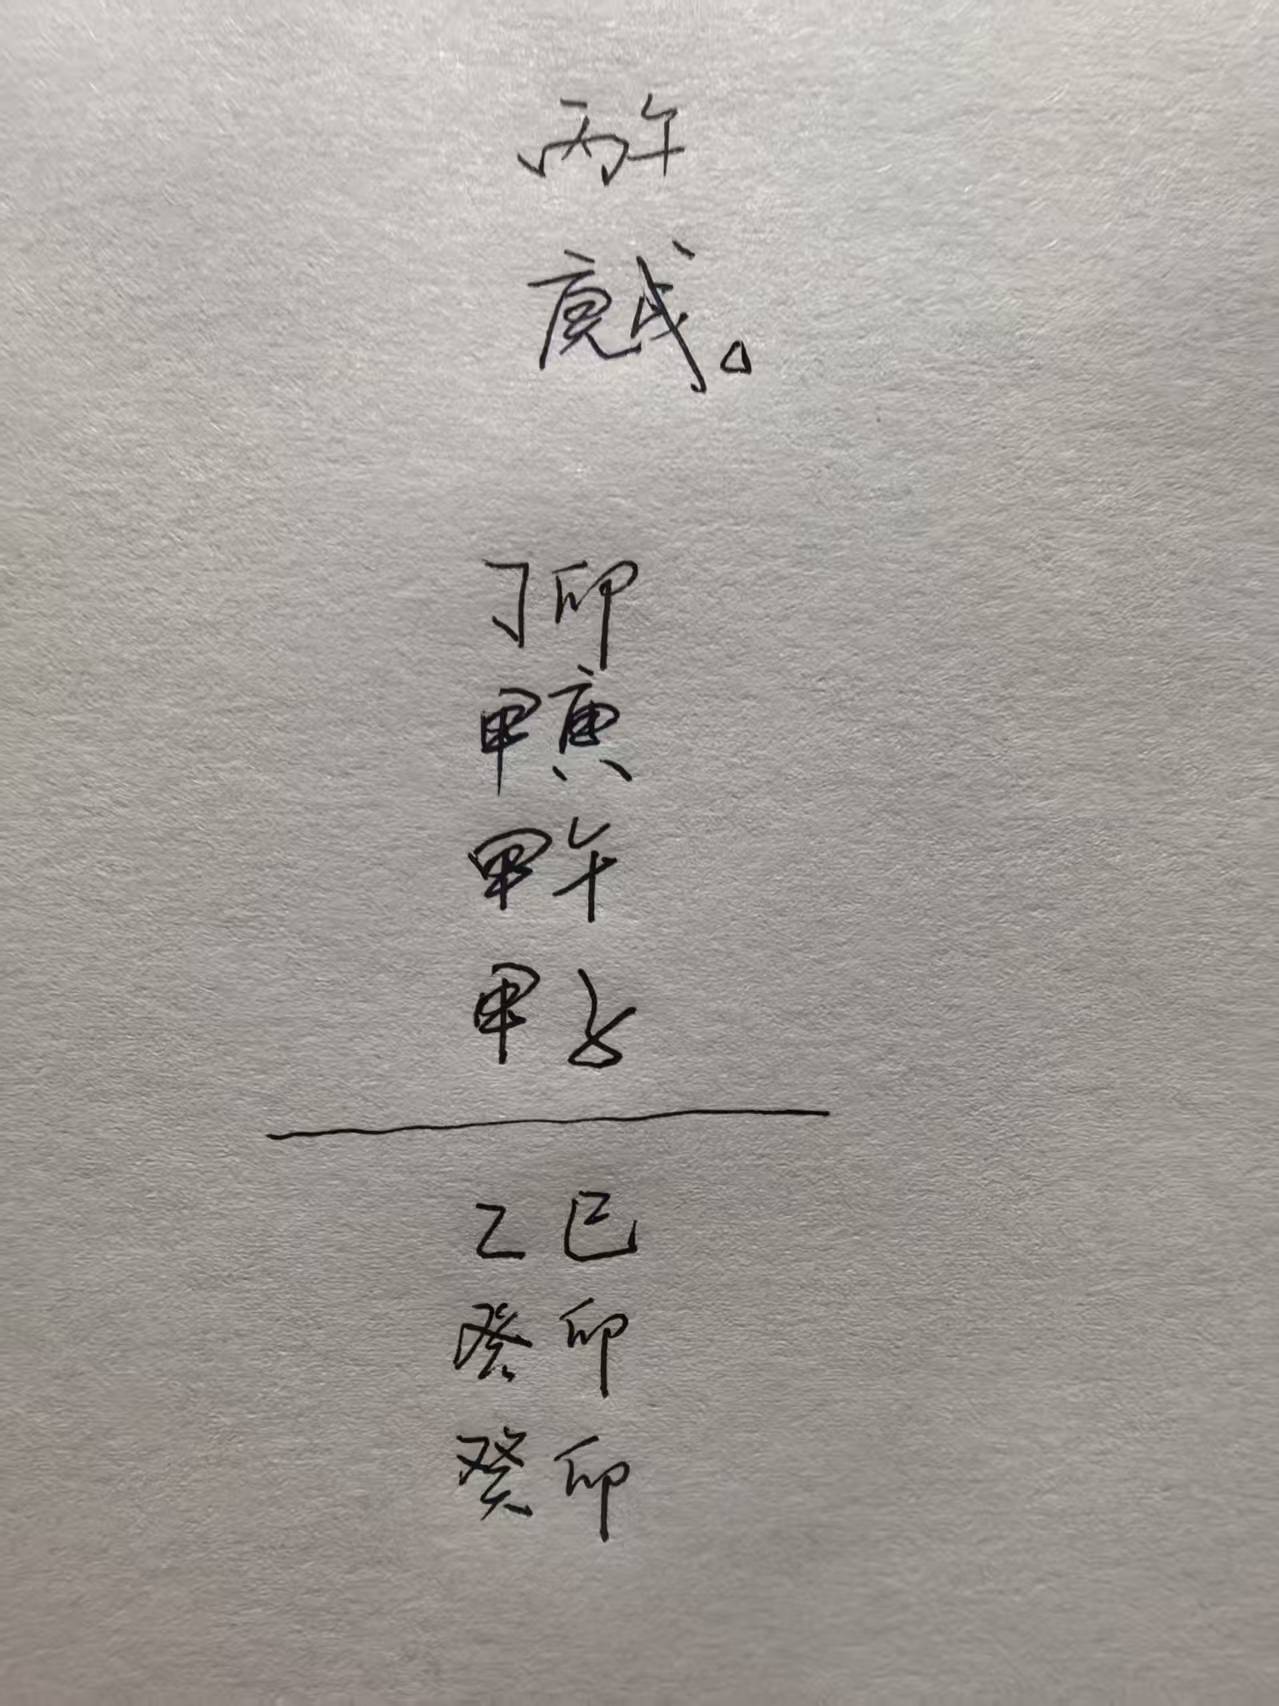 丙午
庚戌。
丁卯
甲寅
甲午
甲子
乙巳
癸卯
癸卯